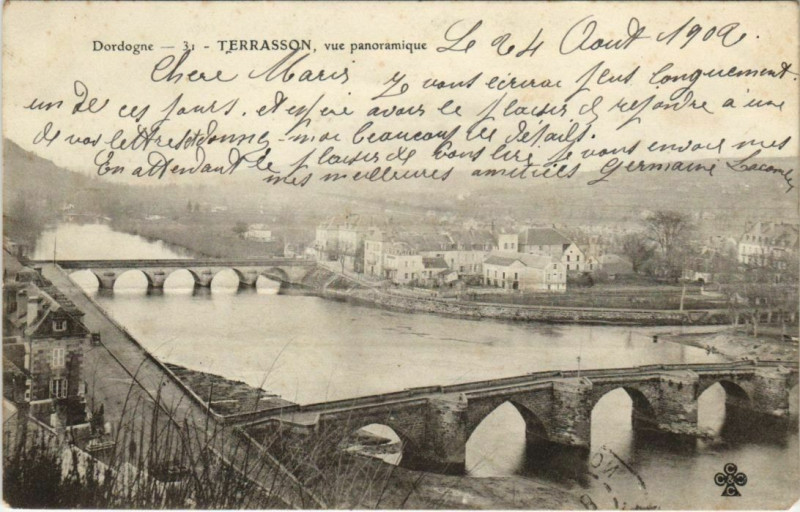 Dordogne — 31 - TERRASSON, vue panoramique
Le 24 Aout 1902.
Chere Maris Je vous écrirai plus longuement
un de ces jours, et espère avoir le plaisir de repondre à une
de vos lettres donnez-moi beaucoup de détails.
En attendant le plaisir de vous lire je vous envoie mes
mes meilleures amitiés Germaine
C C C & C